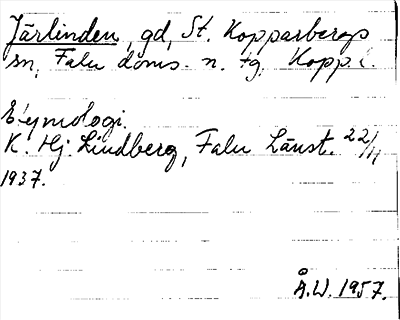 Järlinden, gd, St. Kopparbergs
sn, Falu doms. n. tg, Kopp. l.
Etymologi.
K. Hj. Lindberg, Falu Länst. 22/11
1937.
Å.W. 1957.